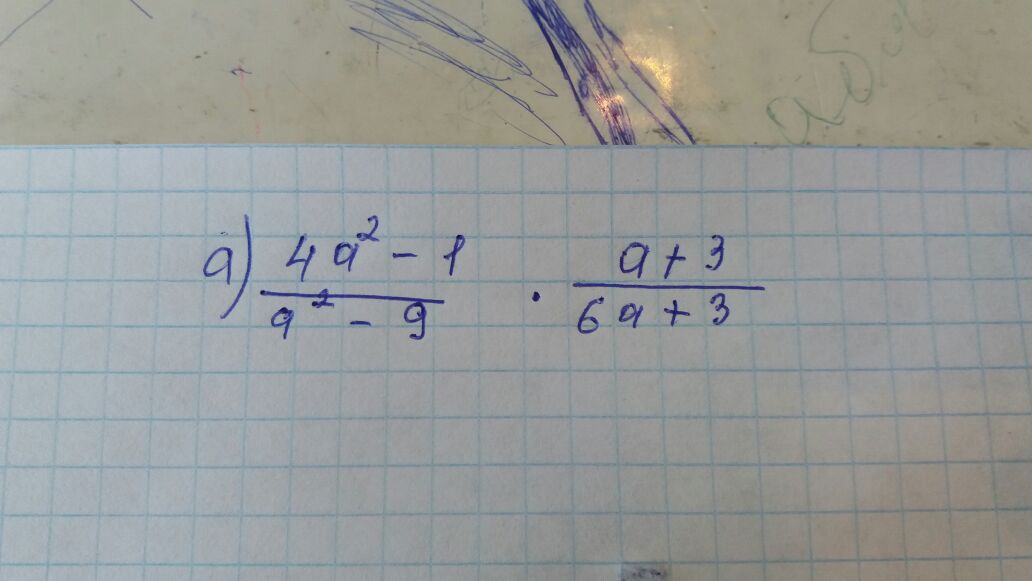 а) 4a² - 1 / a² - 9 · a + 3 / 6a + 3